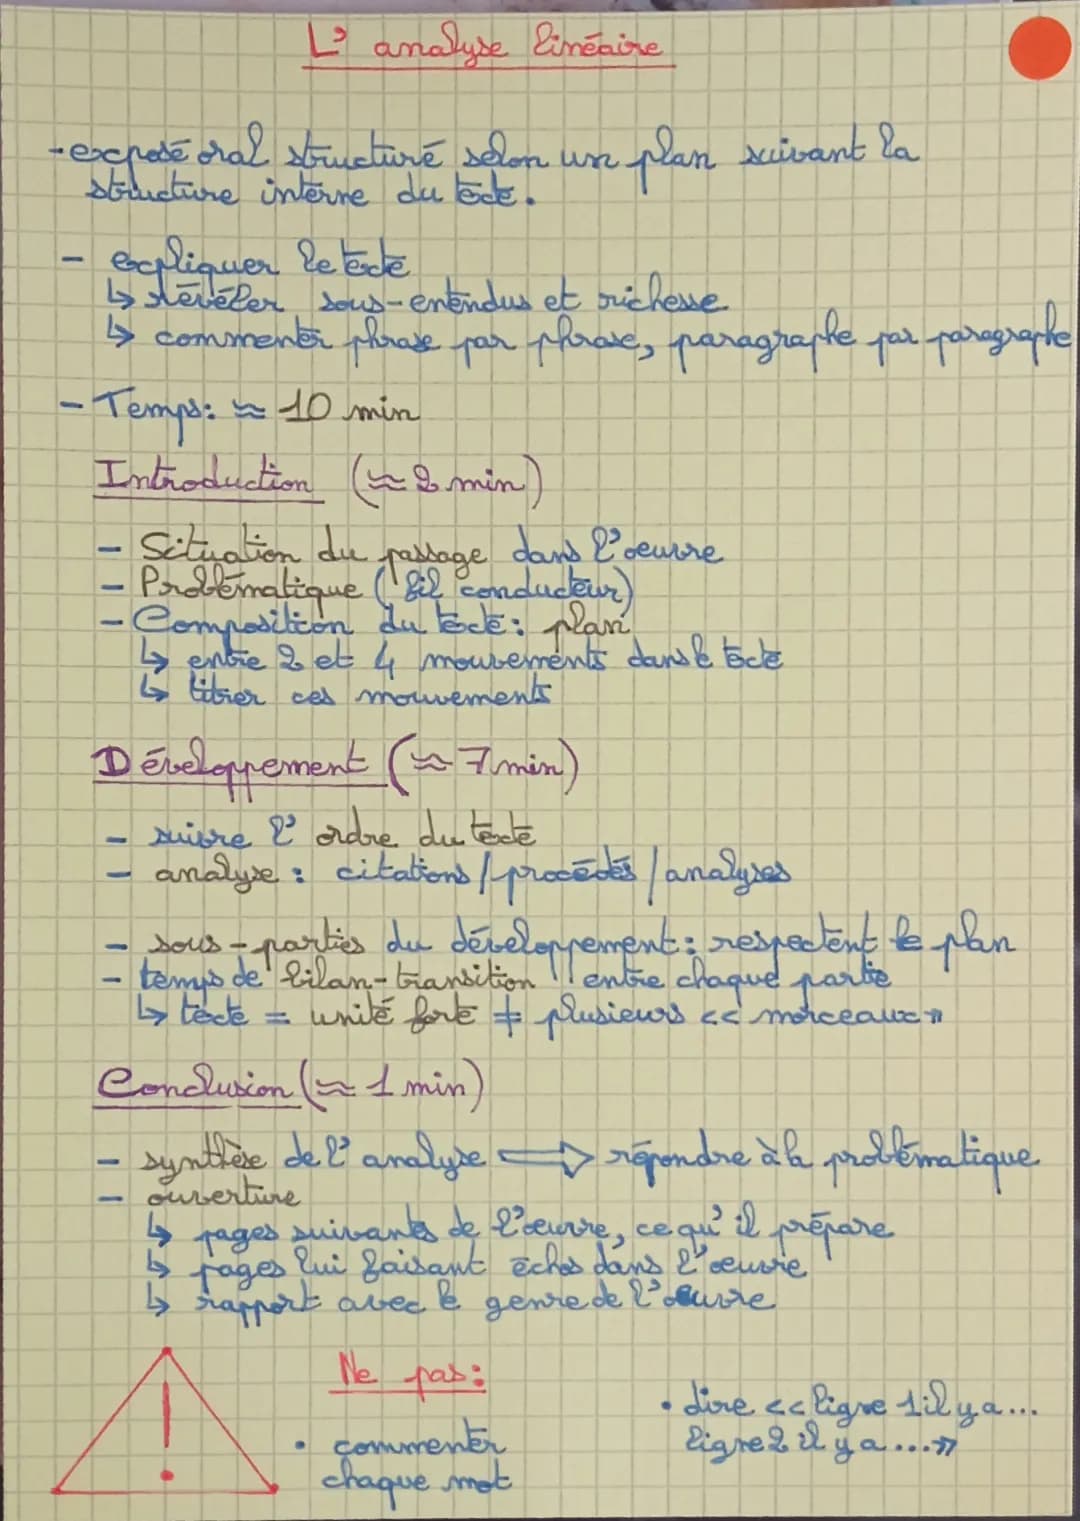 L'analyse linéaire
- exposé oral structuré selon un plan suivant la
structure interne du texte.
- expliquer le texte
↳ révéler sous-entendus et richesse
↳ commenter phrase par phrase, paragraphe par paragraphe
- Temps: ≈ 10 min
Introduction (≈ 2 min)
- Situation du passage dans l'oeuvre
- Problématique (fil conducteur)
- Composition du texte: plan
↳ entre 2 et 4 mouvements dans le texte
↳ titrer ces mouvements
Développement (≈ 7 min)
- suivre l'ordre du texte
- analyse : citations / procédés / analyses
- sous-parties du développement : respectent le plan
- temps de bilan-transition !! entre chaque partie
↳ texte = unité forte ≠ plusieurs << morceaux >>
Conclusion (≈ 1 min)
- synthèse de l'analyse ⇒ répondre à la problématique
- ouverture
↳ pages suivants de l'oeuvre, ce qu'il prépare
↳ pages lui faisant échos dans l'oeuvre
↳ rapport avec le genre de l'oeuvre
!
Ne pas:
• commenter
chaque mot
• dire << ligne 1 il y a...
ligne 2 il y a ... >>